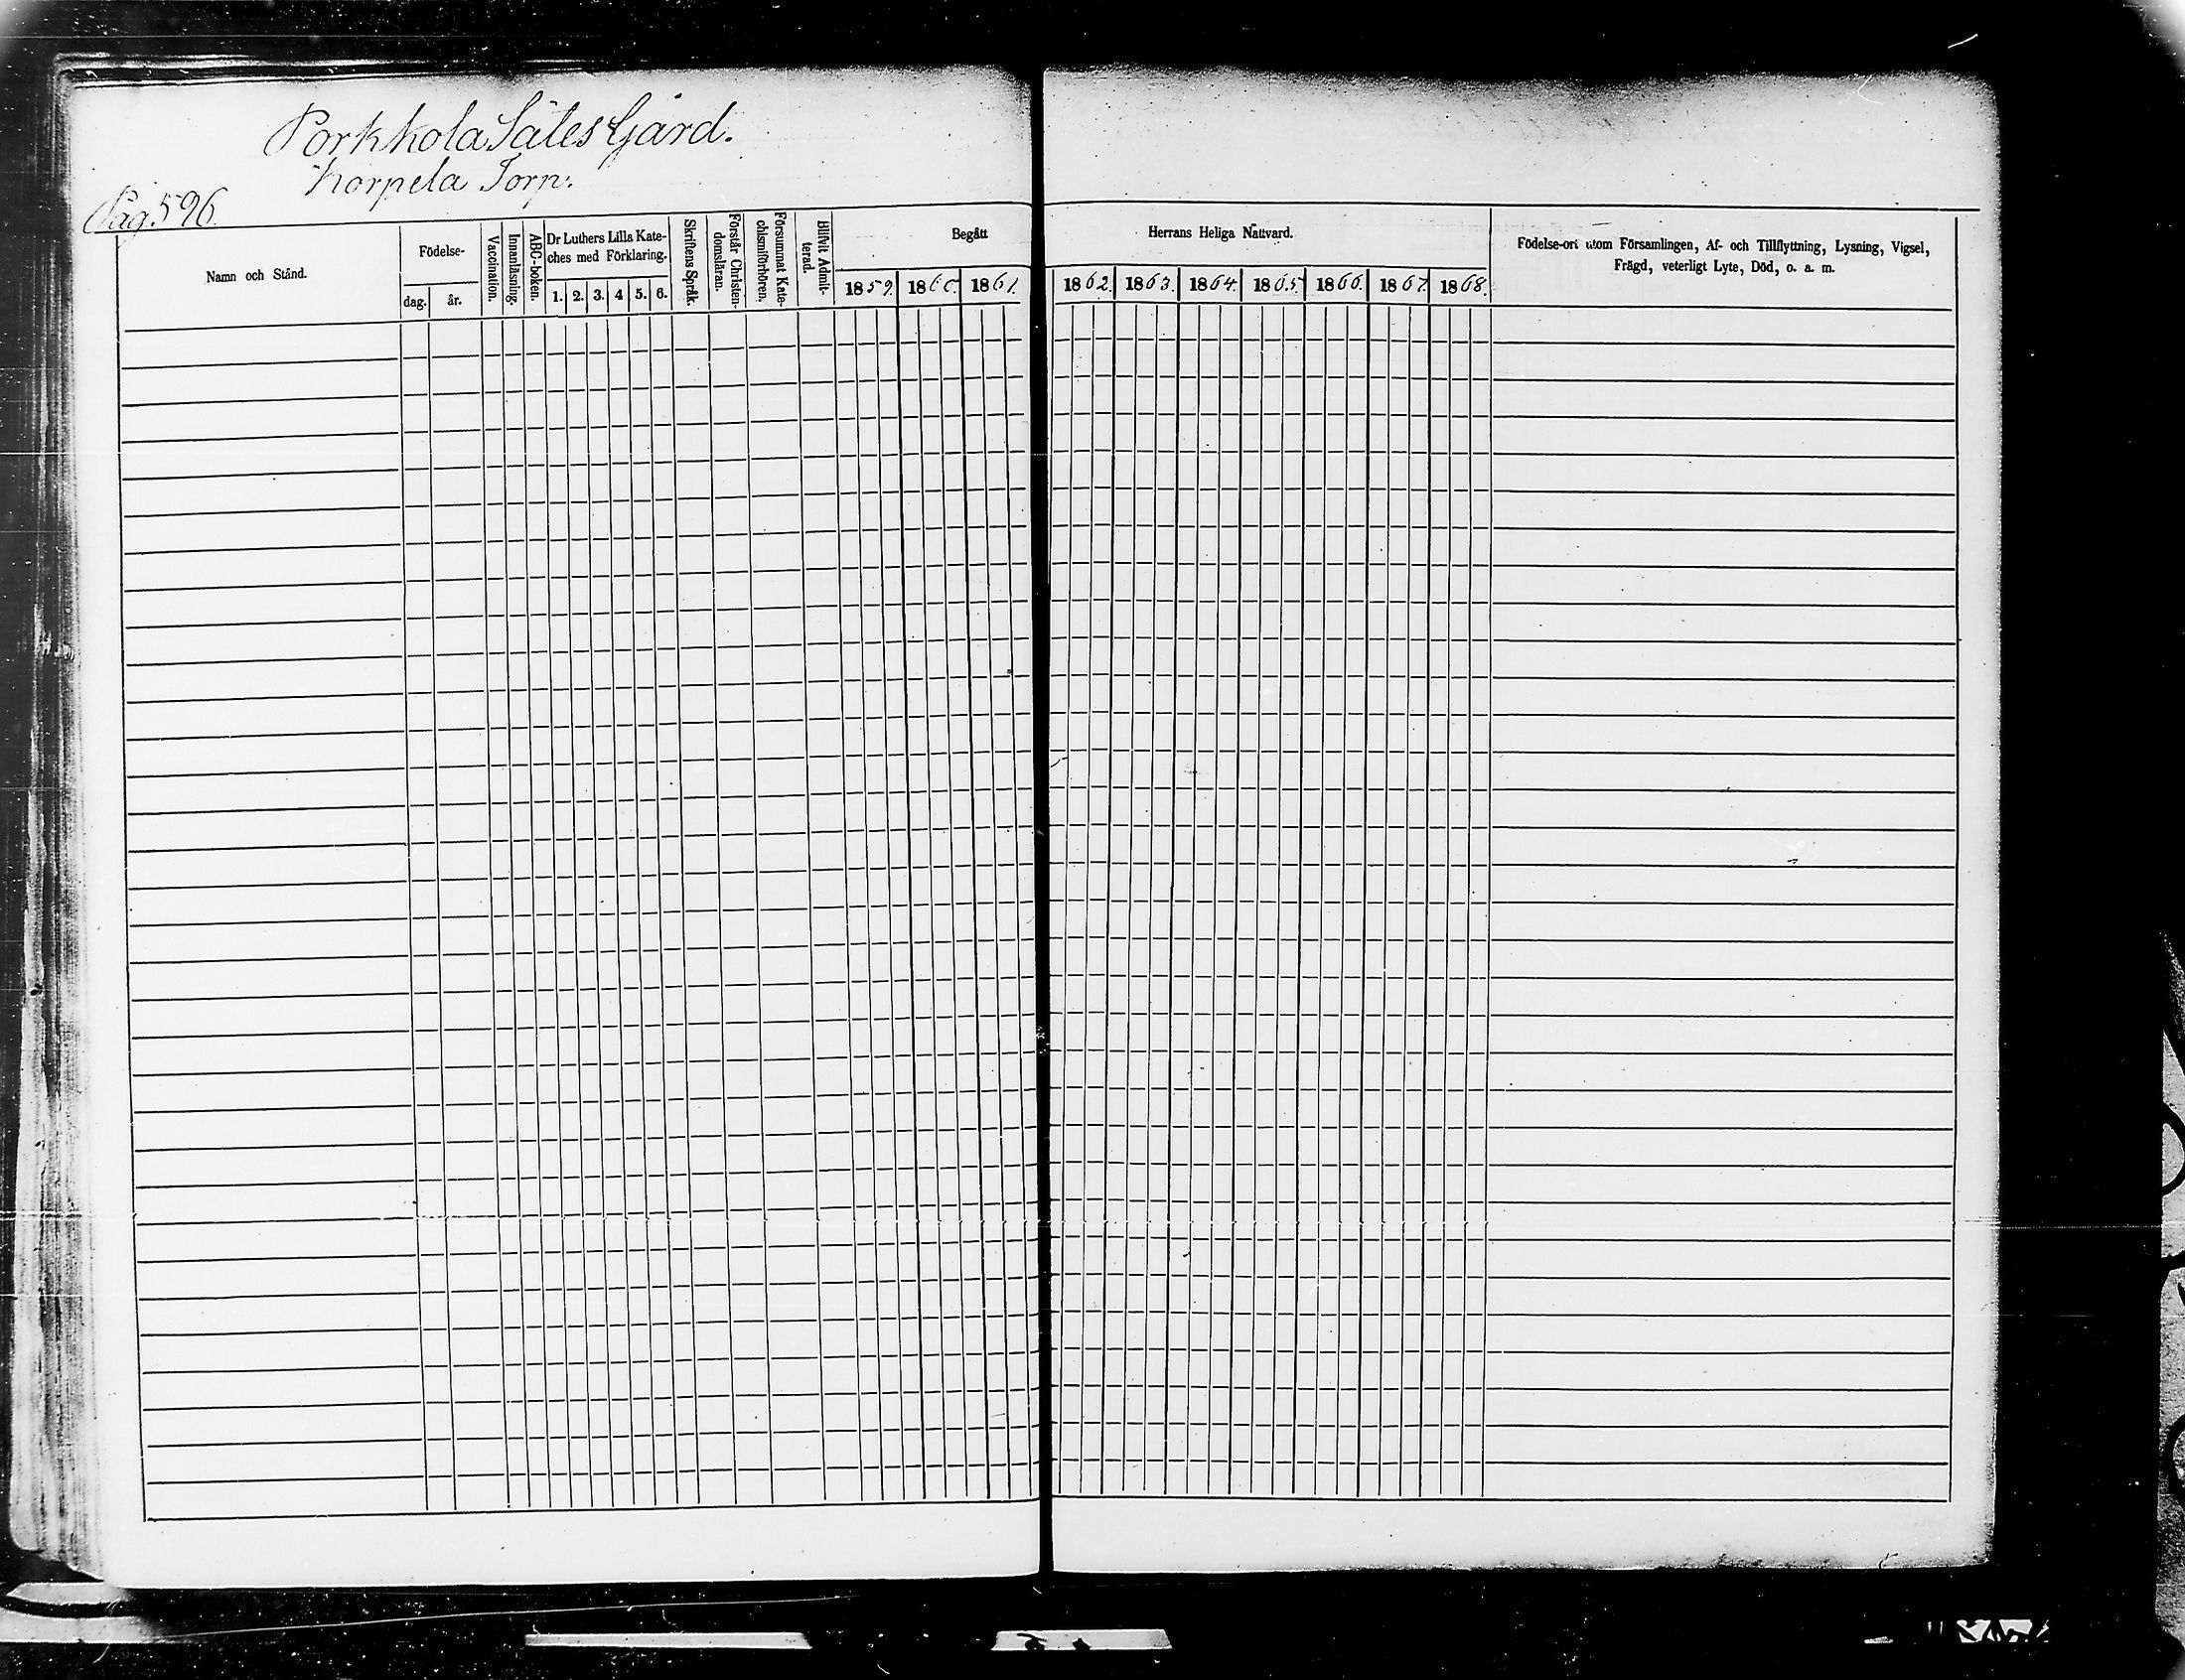 Porkkola Sätes Gård.
Korpela Torp.
Pag. 596.
Namn och Stånd.
Födelse-
dag.
år.
Vaccination.
Innanläsning.
ABC-boken.
Dr Luthers Lilla Kate-
ches med Förklaring.
1. 2. 3. 4 5. 6.
Skriftens Språk.
Förstår Christen-
domsläran.
Försummat Kate-
chismiförhören.
Blifvit Admit-
terad.
Begått
1859. 1860. 1861.
Herrans Heliga Nattvard.
1862. 1863. 1864. 1865. 1866. 1867. 1868.
Födelse-ort utom Församlingen, Af- och Tillflyttning, Lysning, Vigsel,
Frägd, veterligt Lyte, Död, o. a. m.